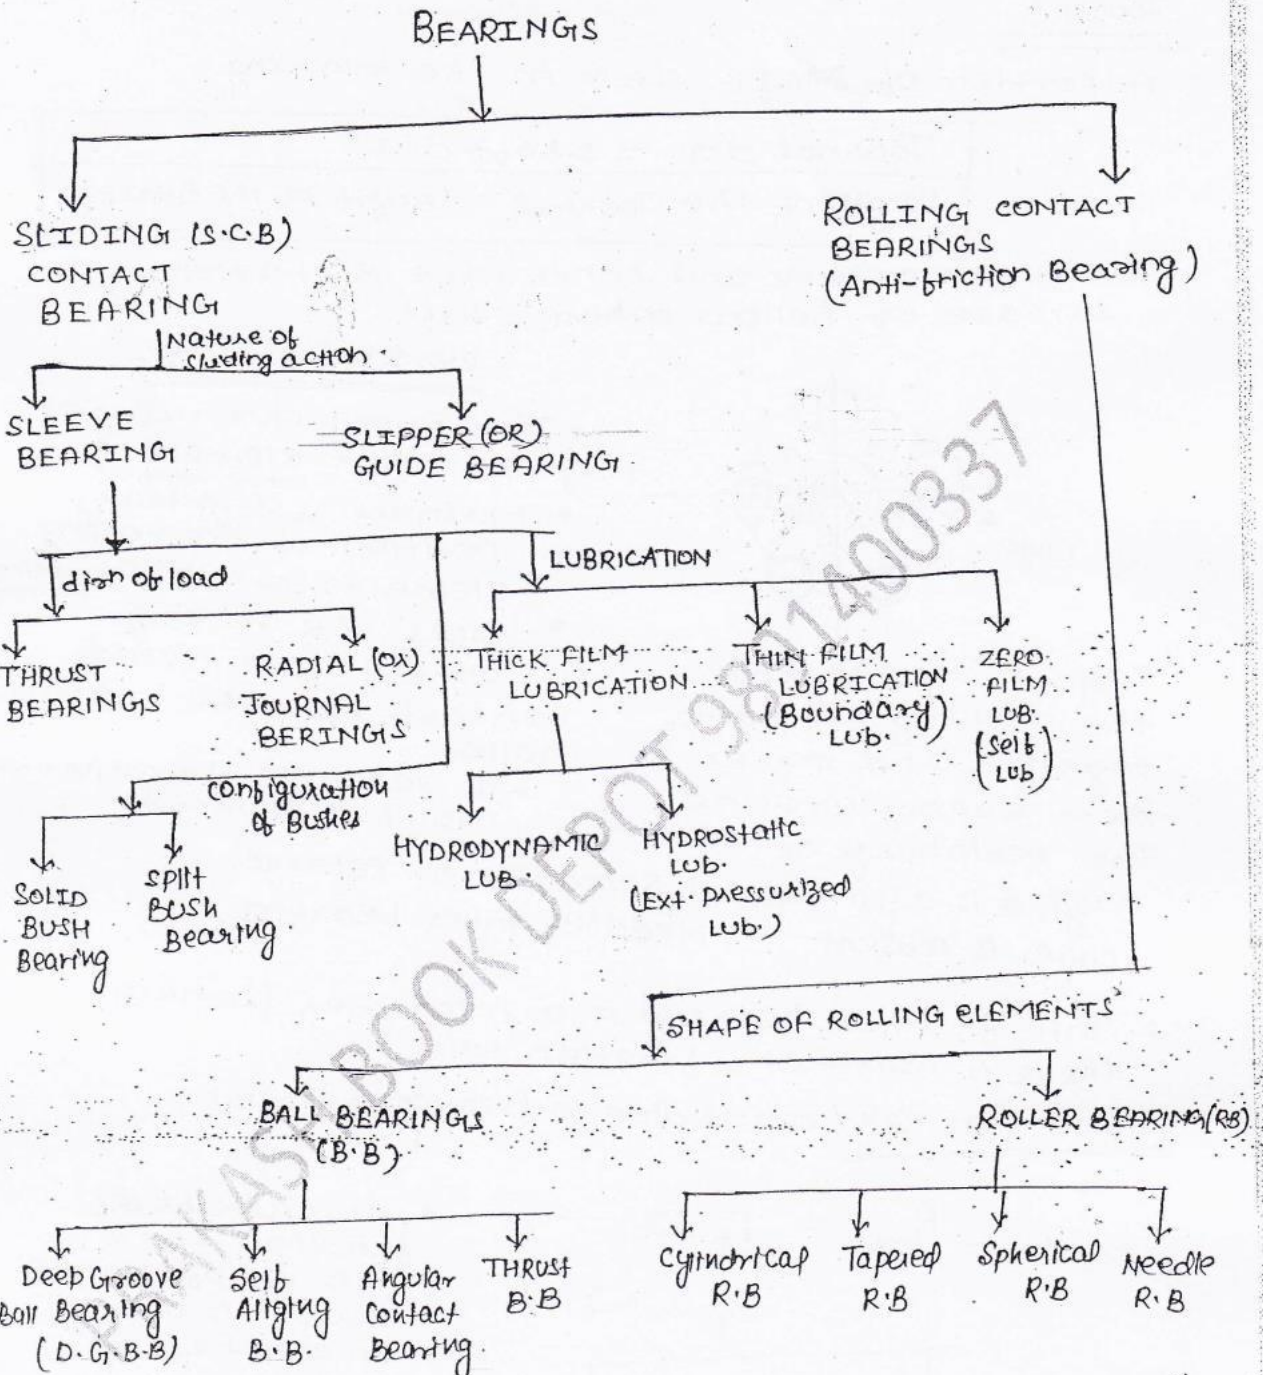 BEARINGS
SLIDING (S.C.B)
CONTACT
BEARING
ROLLING CONTACT
BEARINGS
(Anti-friction Bearing)
Nature of
sliding action.
SLEEVE
BEARING
SLIPPER (OR)
GUIDE BEARING
dirn of load
LUBRICATION
THRUST
BEARINGS
RADIAL (OR)
JOURNAL
BERINGS
THICK FILM
LUBRICATION
THIN FILM
LUBRICATION
(Boundary)
Lub.
ZERO
FILM
LUB.
(Self
Lub)
Configuration
of Bushes
SOLID
BUSH
Bearing
Split
BUSH
Bearing
HYDRODYNAMIC
LUB.
HYDROstatic
LUB.
(Ext. Pressurized
Lub.)
SHAPE OF ROLLING ELEMENTS
BALL BEARINGS
(B.B)
ROLLER BEARING(RB)
Deep Groove
Ball Bearing
(D.G.B.B)
Self
Aliging
B.B.
Angular
Contact
Bearing.
THRUST
B.B
Cylindrical
R.B
Tapered
R.B
Spherical
R.B
Needle
R.B
PRAKASH BOOK DEPOT 9891400337